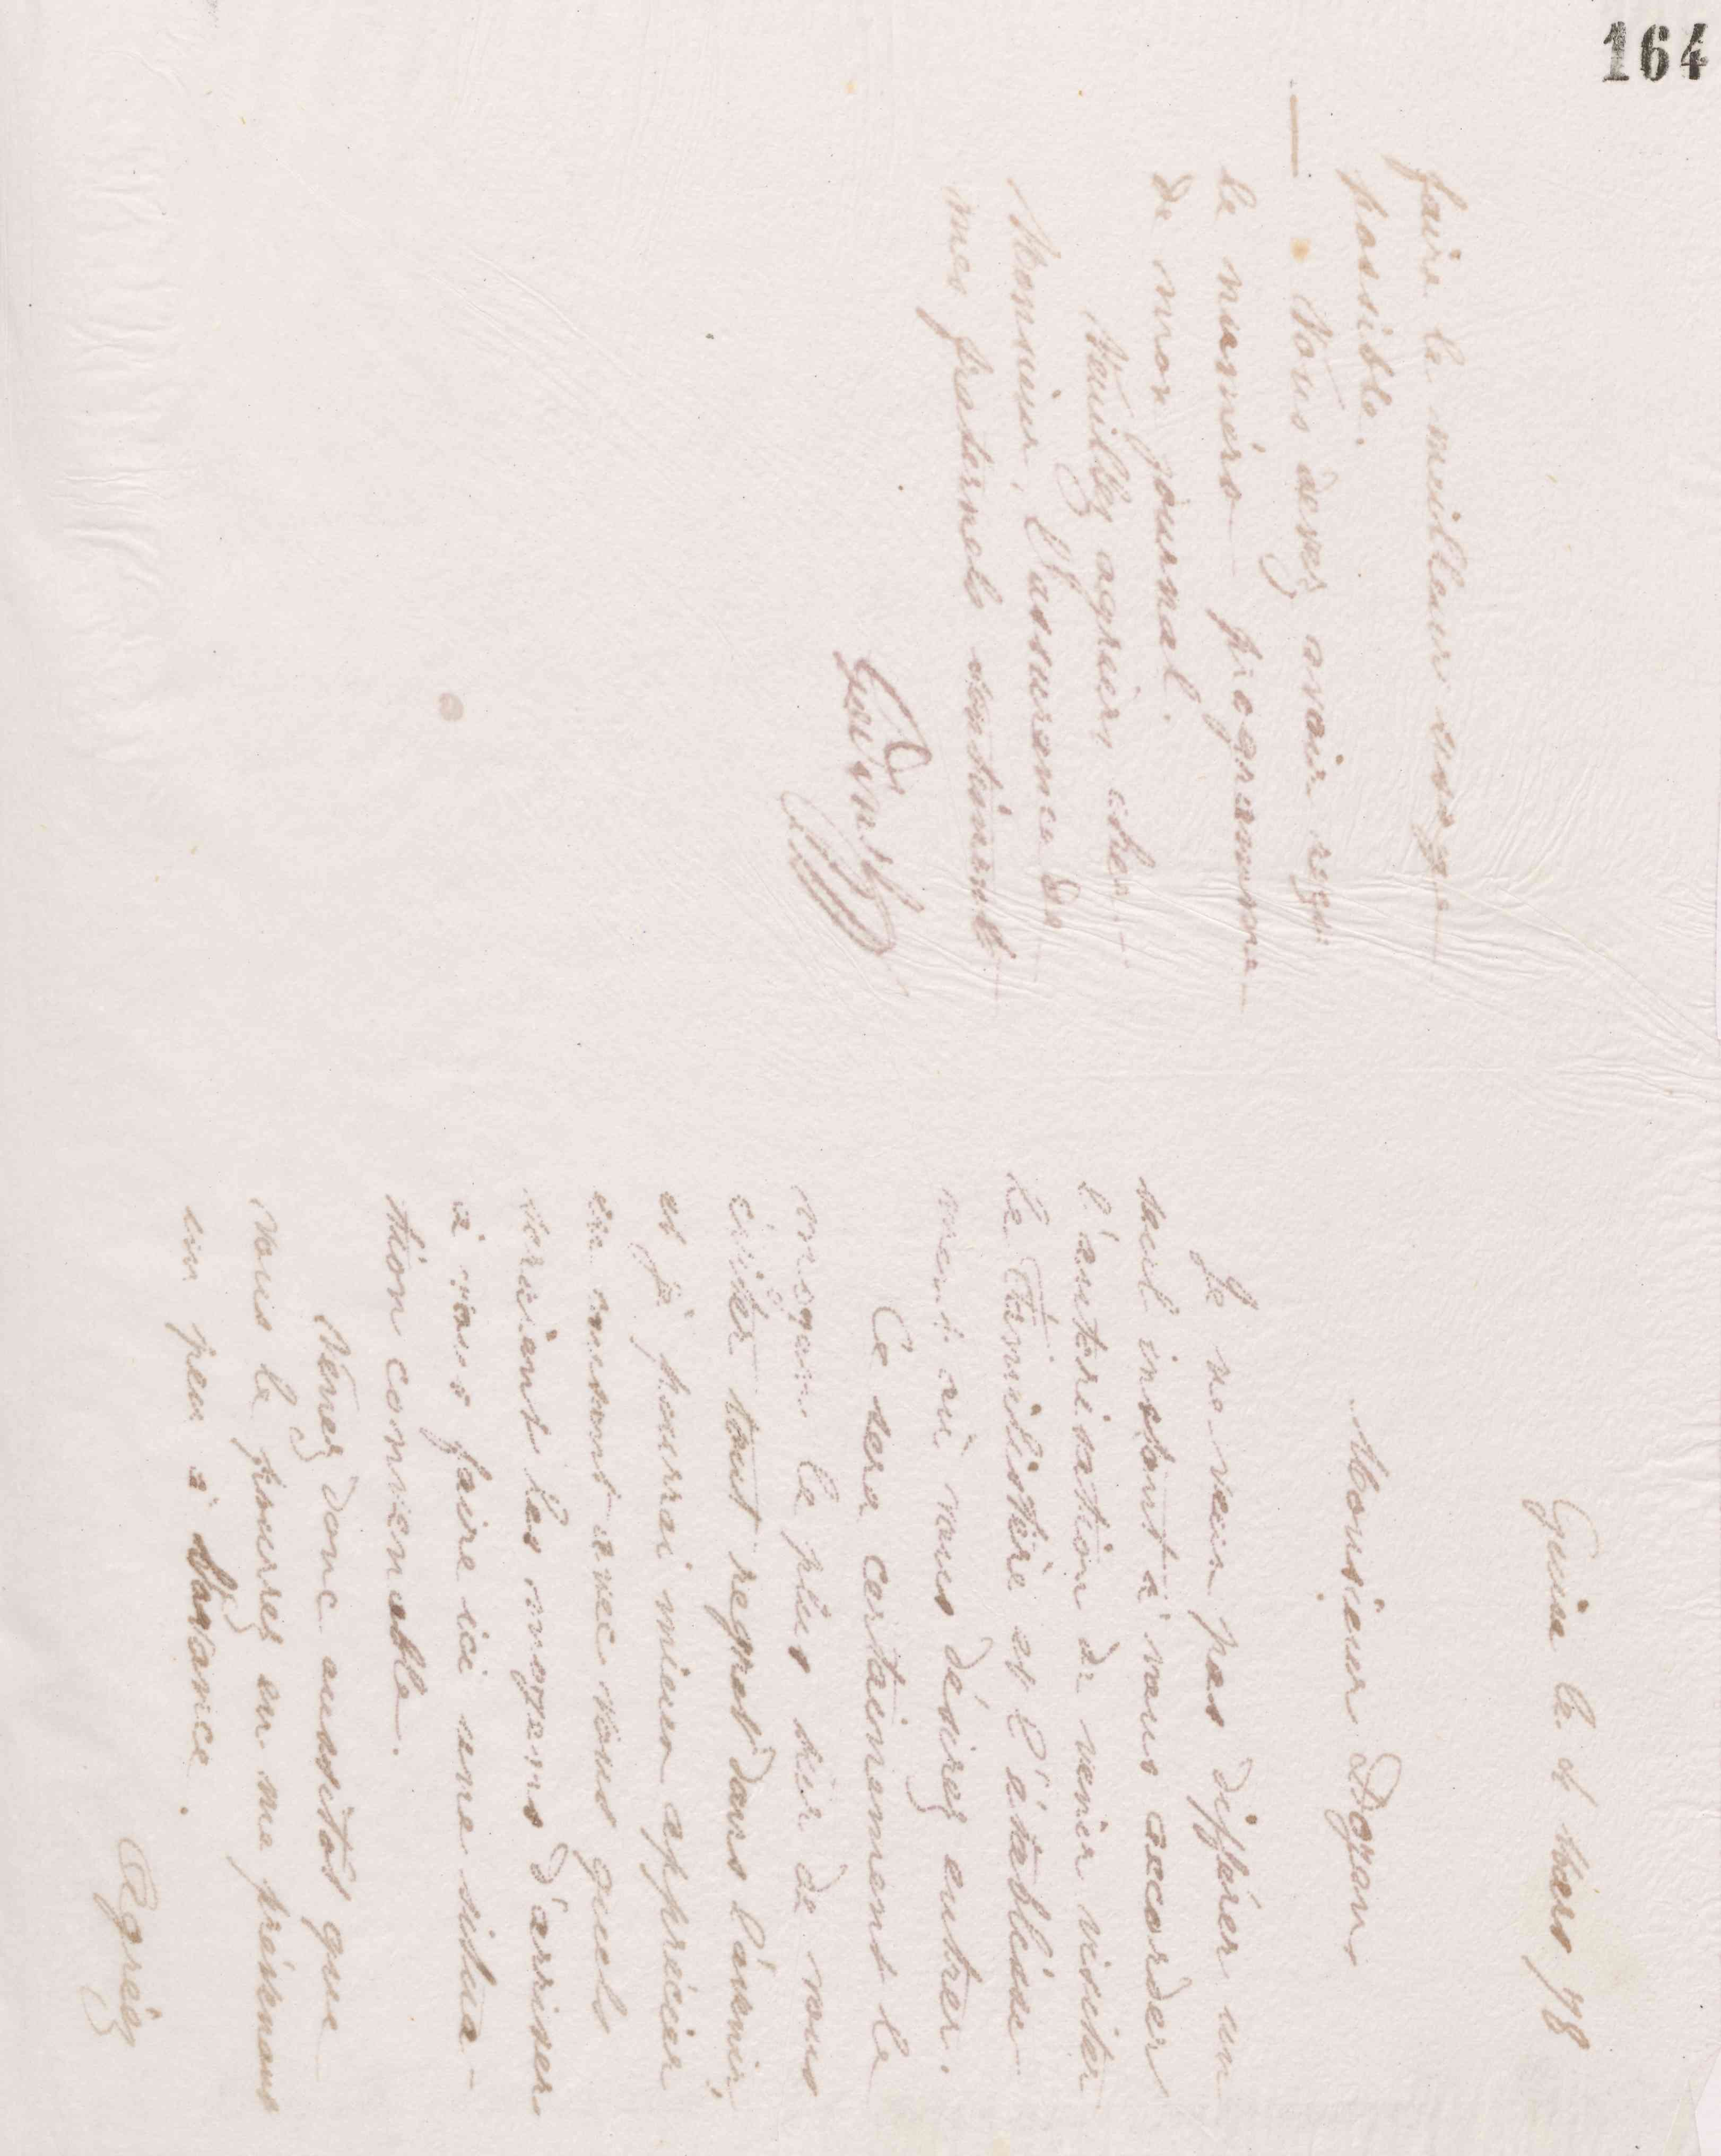 164
faire le meilleur usage
possible.
— Vous devez avoir reçu
le numéro programme
de mon journal.
Veuillez agréer, cher
Monsieur, l'assurance de
mes fraternels sentiments
Godin
Guise le 4 Mars 78
Monsieur Doyan
Je ne veux pas différer un
seul instant à vous accorder
l'autorisation de venir visiter
le Familistère et l'établisse
ment où vous désirez entrer.
Ce sera certainement le
moyen le plus sûr de vous
éviter tout regret dans l'avenir,
et je pourrai mieux apprécier
en causant avec vous quels
seraient les moyens d'arriver
à vous faire ici une situa-
tion convenable.
Venez donc aussitôt que
vous le pourrez en me prévenant
un peu à l'avance.
Agréez